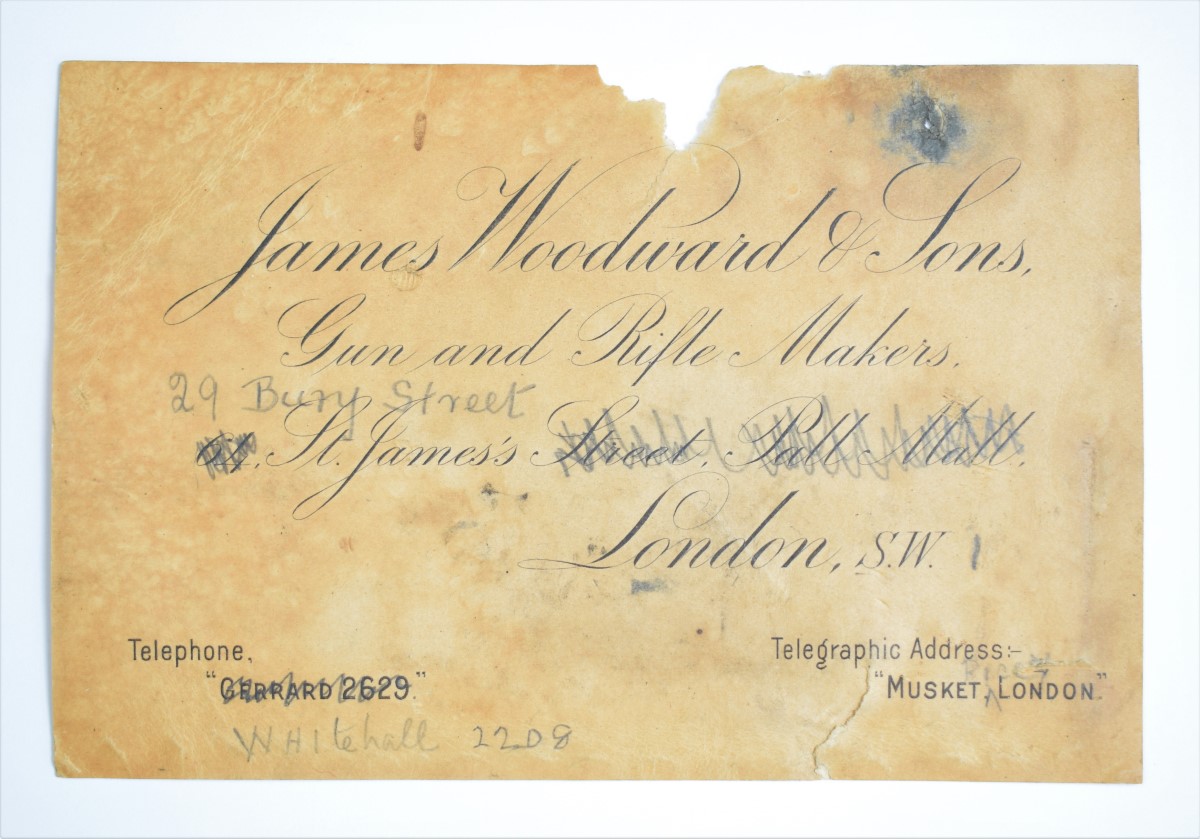 James Woodward & Sons,
Gun and Rifle Makers.
29 Bury Street
St. James's Street, Pall Mall,
London, S.W. 1
Telephone,
"GERRARD 2629."
WHItehall 2208
Telegraphic Address:-
"MUSKET, LONDON."